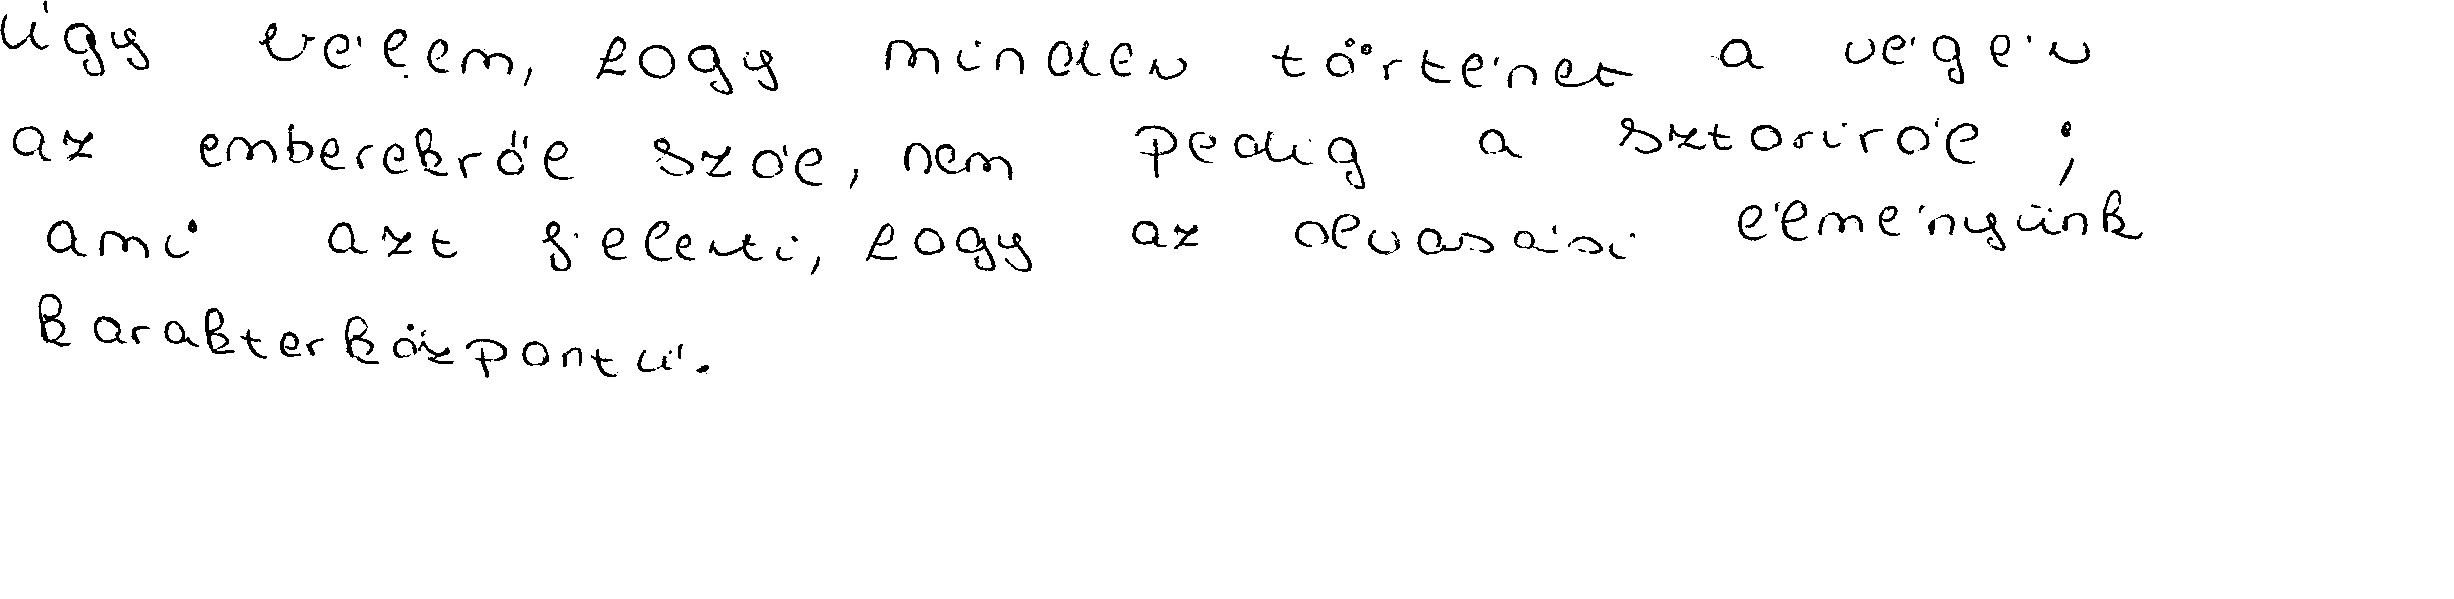 úgy vélem, hogy minden történet a végén
az emberekről szól, nem pedig a sztoriról;
ami azt jelenti, hogy az olvasási élményünk
karakterközpontú.